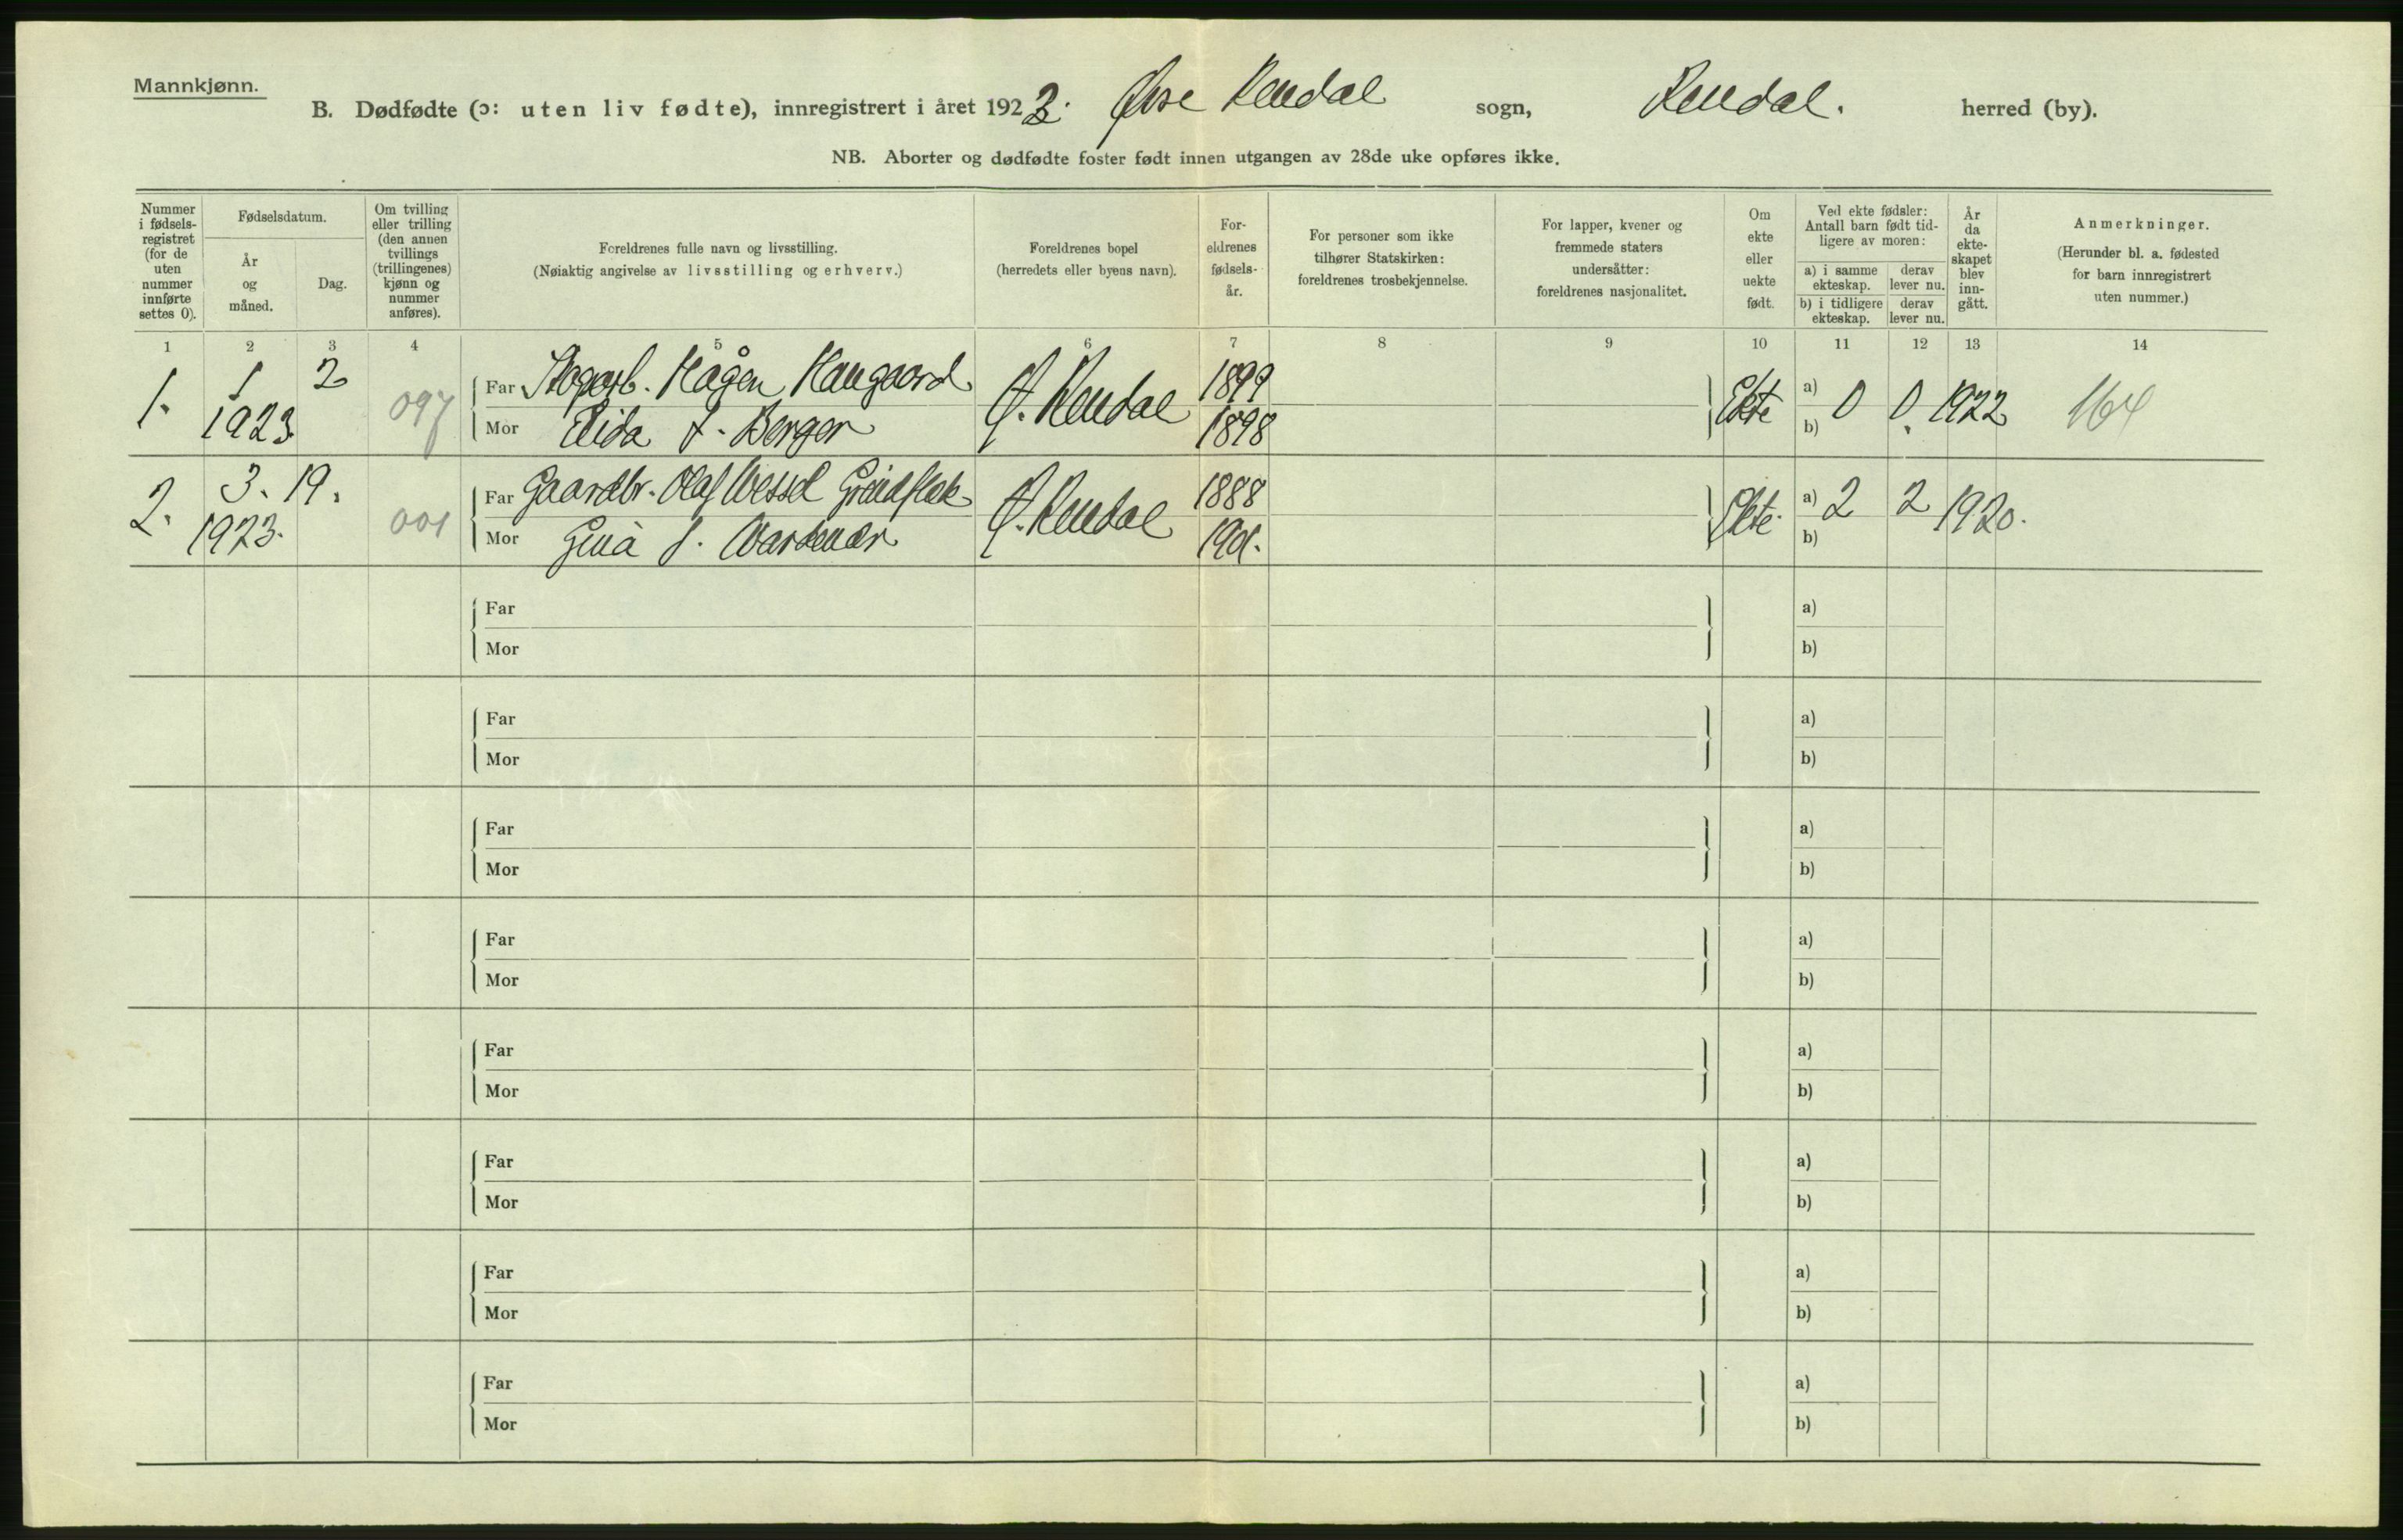 Mannkjønn.
B. Dødfødte (ɔ: uten liv fødte), innregistrert i året 1923. Øvre Rendal sogn, Rendal. herred (by).
NB. Aborter og dødfødte foster født innen utgangen av 28de uke opføres ikke.
Nummer
i fødsels-
registret
(for de
uten
nummer
innførte
settes 0).
Fødselsdatum.
År
og
måned.
Dag.
Om tvilling
eller trilling
(den annen
tvillings
(trillingenes)
kjønn og
nummer
anføres).
Foreldrenes fulle navn og livsstilling.
(Nøiaktig angivelse av livsstilling og erhverv.)
Foreldrenes bopel
(herredets eller byens navn).
For-
eldrenes
fødsels-
år.
For personer som ikke
tilhører Statskirken:
foreldrenes trosbekjennelse.
For lapper, kvener og
fremmede staters
undersåtter:
foreldrenes nasjonalitet.
Om
ekte
eller
uekte
født.
Ved ekte fødsler:
Antall barn født tid-
ligere av moren:
a) i samme
ekteskap.
derav
lever nu.
b) i tidligere
ekteskap.
derav
lever nu.
År
da
ekte-
skapet
blev
inn-
gått.
Anmerkninger.
(Herunder bl. a. fødested
for barn innregistrert
uten nummer.)
1 2 3 4 5 6 7 8 9 10 11 12 13 14
1. 1 2
1923. 097
Far Skogarb. Hågen Haugaard 1899
Mor S. Berger Ø. Rendal 1898
Ekte a) 0 0. 1922 164
b)
2. 3. 19.
1923. 001
Far Gaardbr. Olaf Wessel 1888
Mor Gina J. Ø. Rendal 1901.
Ekte. a) 2 2 1920.
b)
Far a)
Mor b)
Far a)
Mor b)
Far a)
Mor b)
Far a)
Mor b)
Far a)
Mor b)
Far a)
Mor b)
Far a)
Mor b)
Far a)
Mor b)